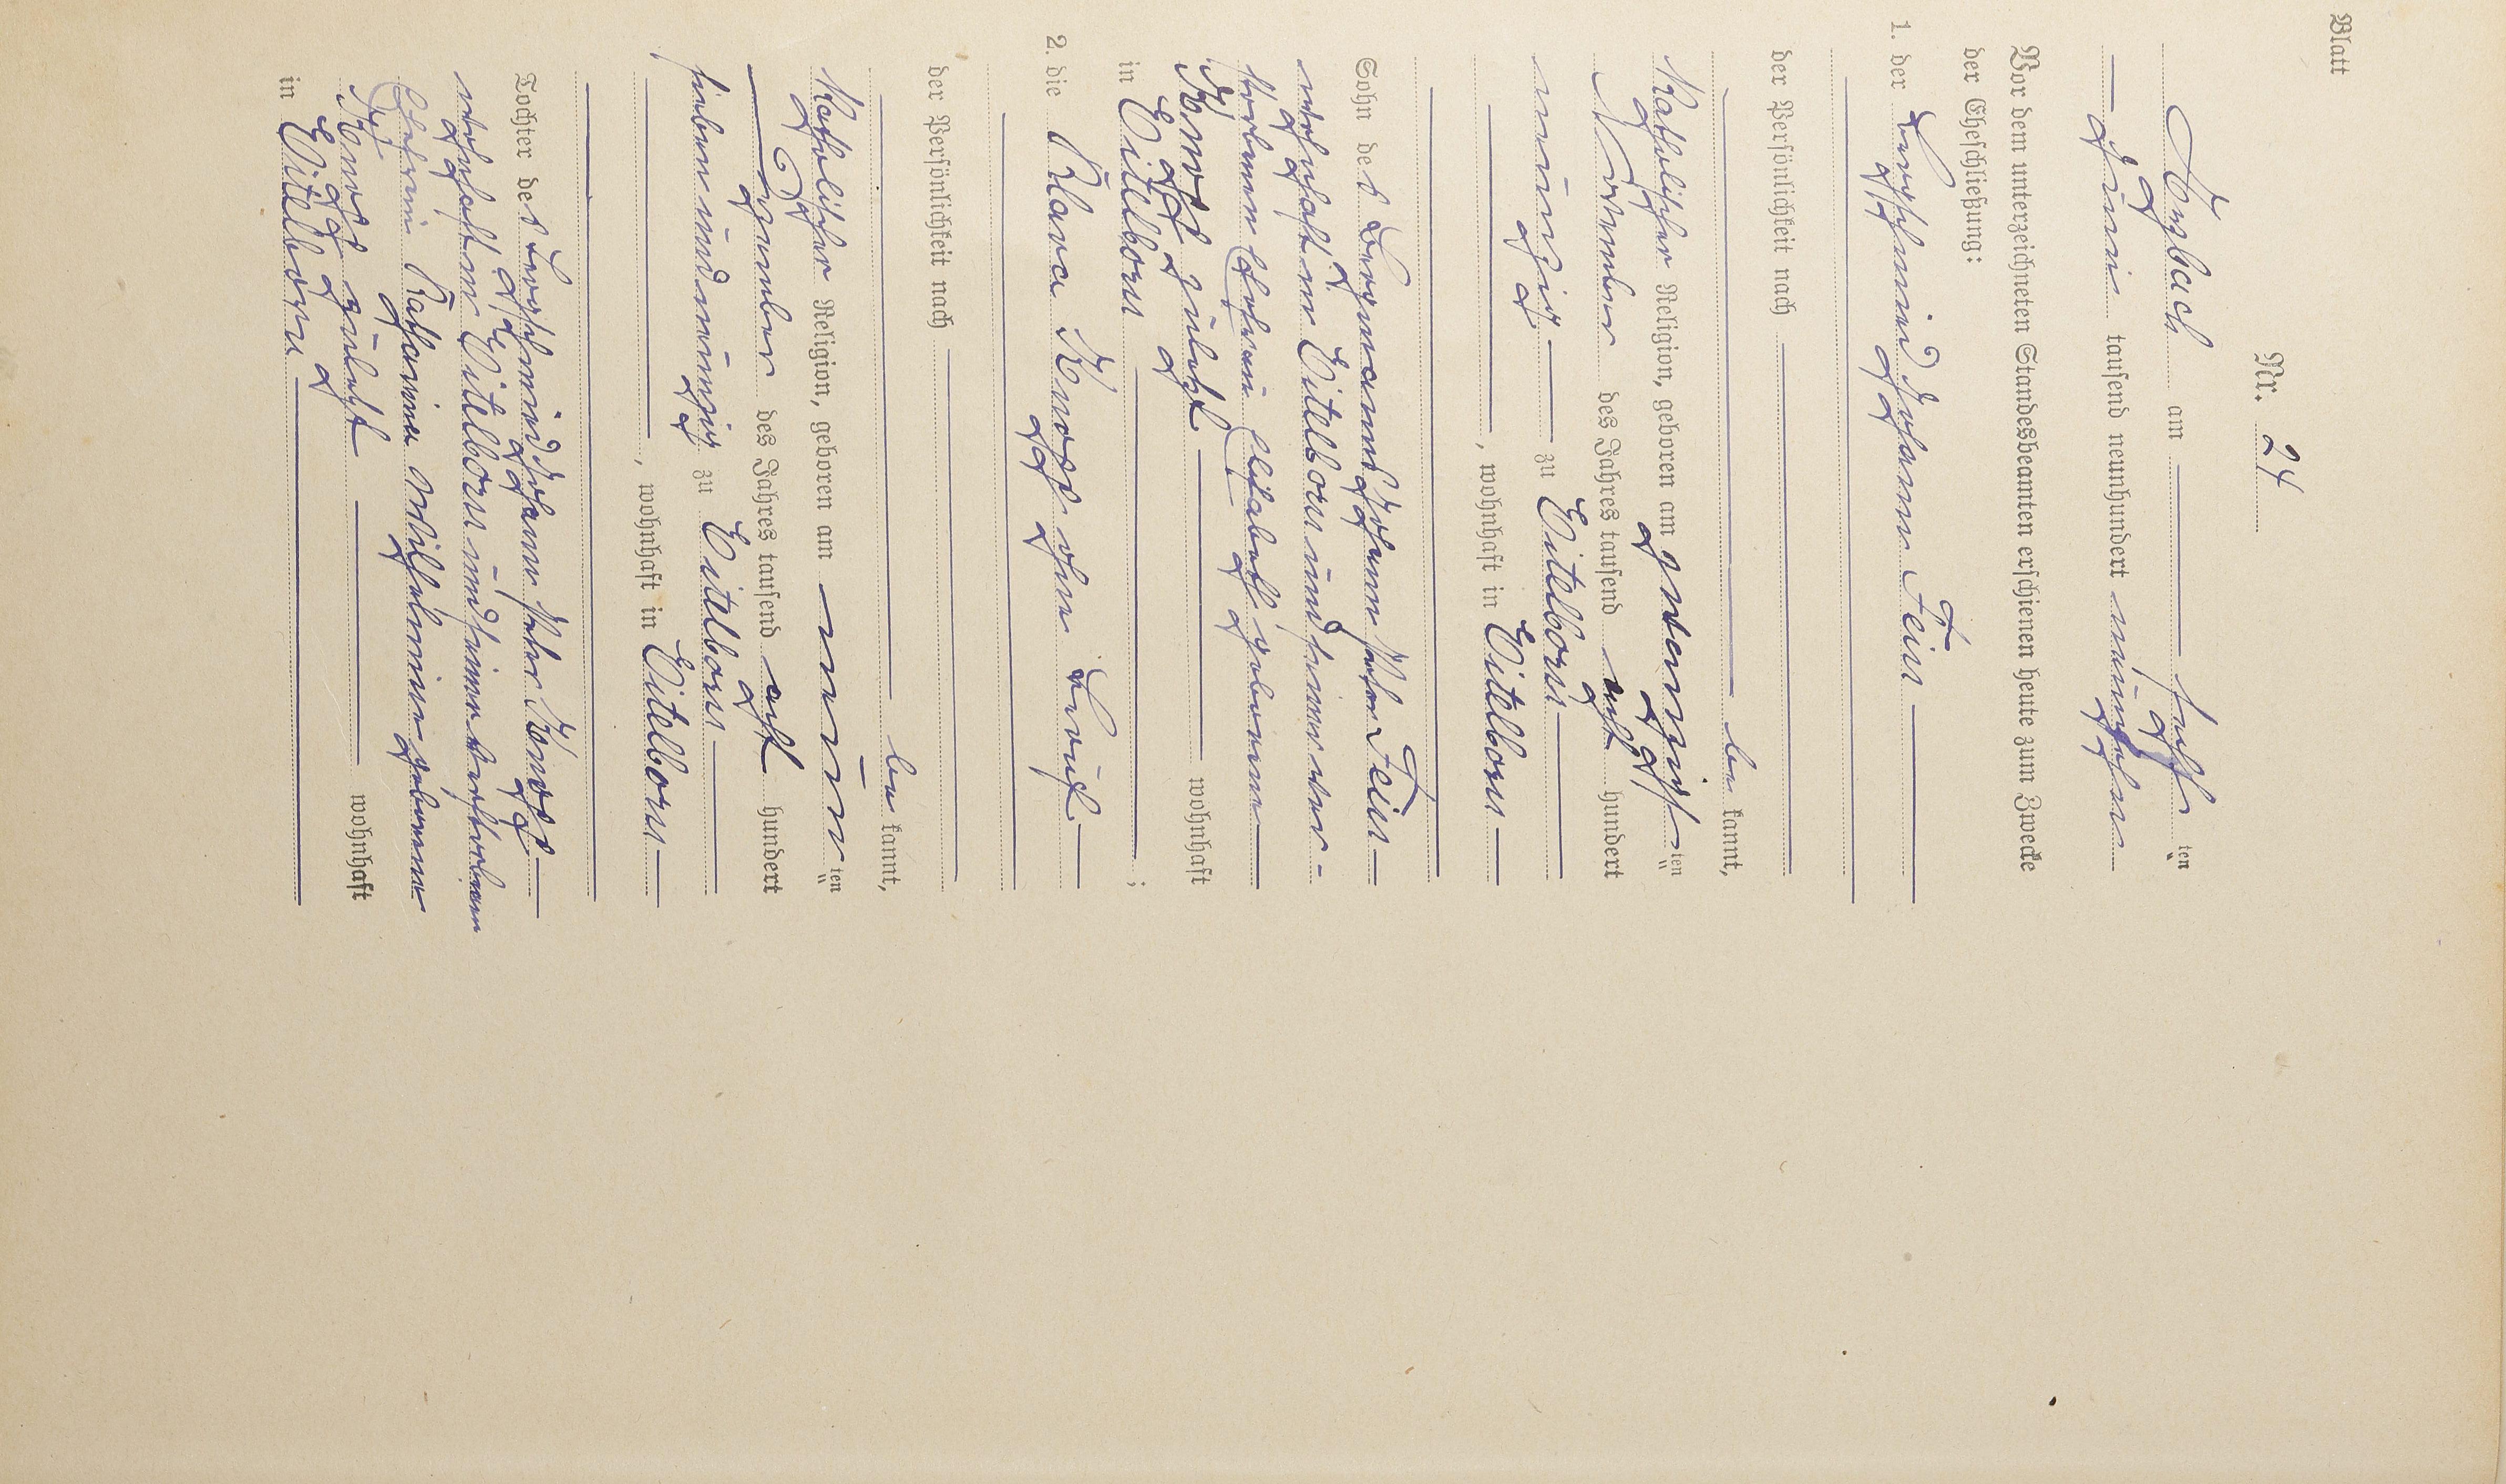 Blatt
Nr. 24
am sechsten
Juni tausend neunhundert neunzehn
Vor dem unterzeichneten Standesbeamten erschienen heute zum Zwecke
der Eheschließung:
1. der Johann Fein
der Persönlichkeit nach
be kannt,
Katholischer Religion, geboren am zwanzigsten
des Jahres tausend acht hundert
neunzig zu Eitelborn
, wohnhaft in Eitelborn
Sohn des Bergmanns Johann Peter Fein
wohnhaft in Eitelborn und seiner ver-
storbenen Ehefrau Elisabeth geborene
Knopp zuletzt wohnhaft
in Eitelborn ;
2. die Klara Knopp ohne Beruf
der Persönlichkeit nach
be kannt,
Katholischer Religion, geboren am neunten
des Jahres tausend acht hundert
sieben und neunzig zu Eitelborn
, wohnhaft in Eitelborn
Tochter des Johann Peter Knopp
wohnhaft in Eitelborn und seiner verstorbenen
Ehefrau Katharina Wilhelmine geborene
zuletzt wohnhaft
in Eitelborn